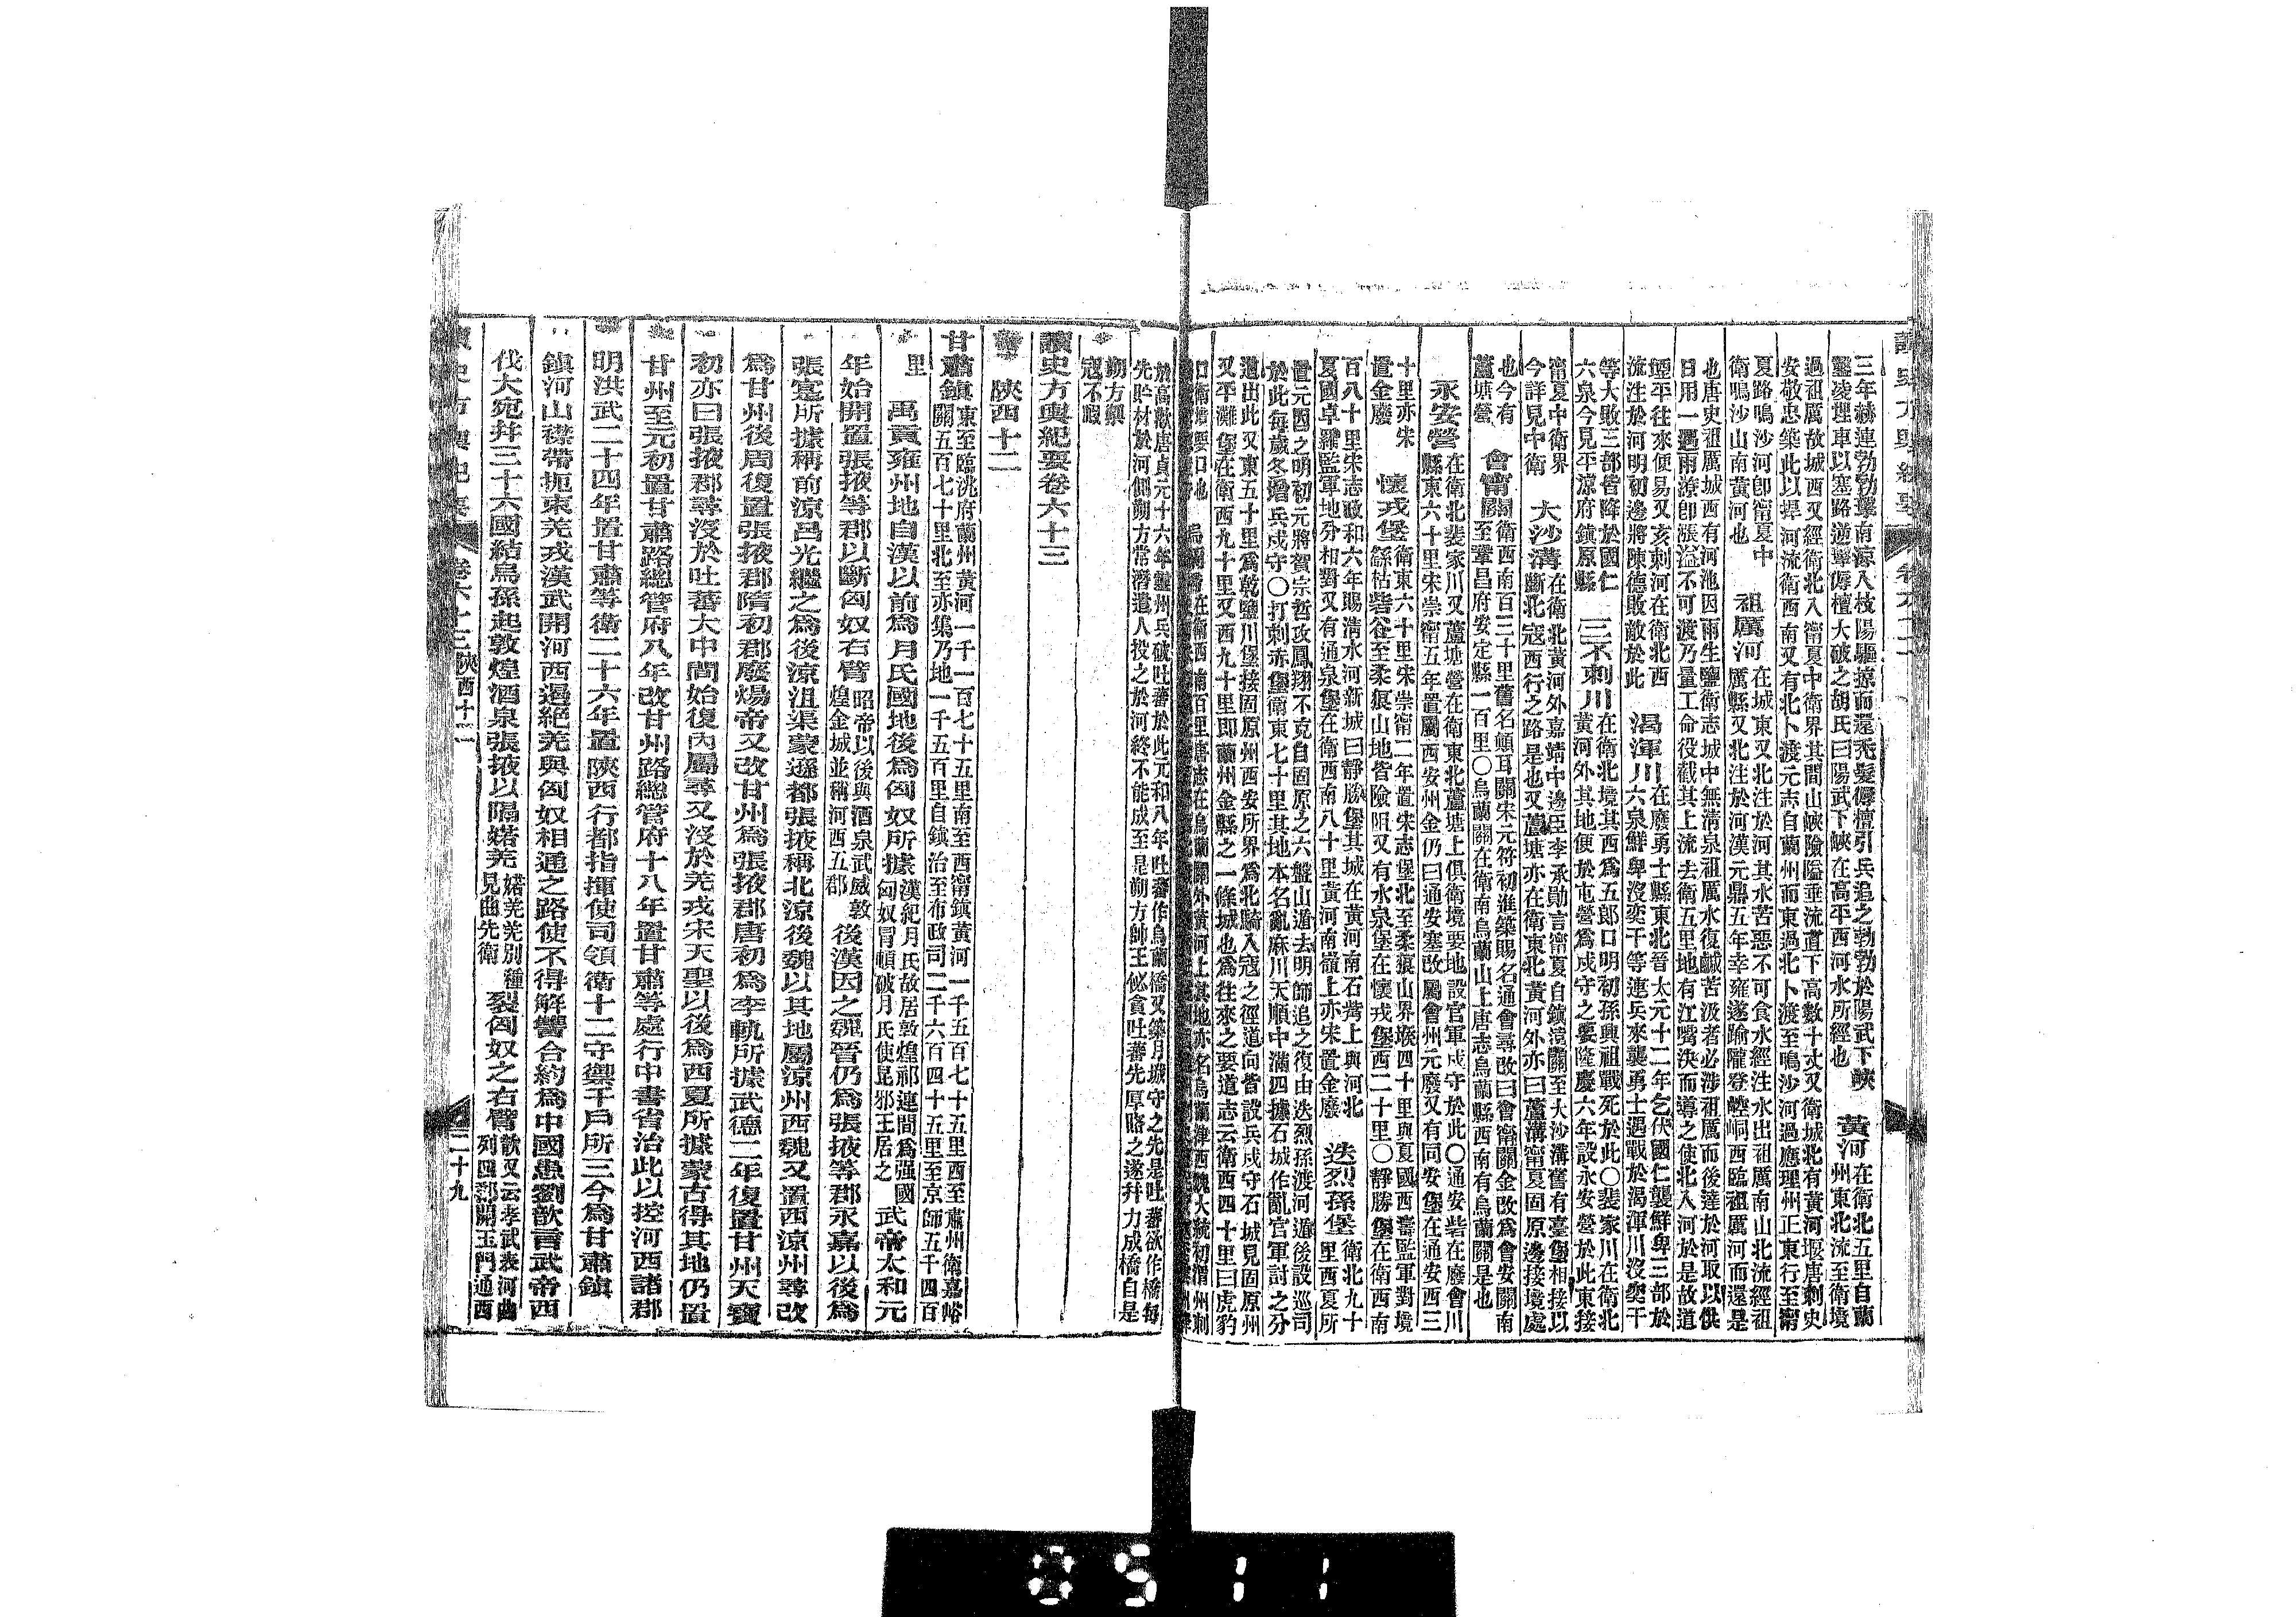 三年赫連勃勃擊南涼入枝陽驅掠而還禿髮傉檀引兵追之勃勃於陽武下峽
鑿凌埋車以塞路逆擊傉檀大破之胡氏曰陽武下峽在高平西河水所經也
黃河
在衛北五里自蘭
州東北流至衛境
過祖厲故城西又經衛北入甯夏中衛界其間山峽險隘垂流直下高數十丈又衛城北有黃河堰唐刺史
安敬忠築此以捍河流衛西南又有北卜渡元志自蘭州而東過北卜渡至鳴沙河過應理州正東行至甯
夏路鳴沙河卽甯夏中
衛鳴沙山南黃河也
祖厲河
在城東又北注於河其水苦惡不可食水經注水出祖厲南山北流經祖
厲縣又北注於河漢元鼎五年幸雍遂踰隴登崆峒西臨祖厲河而還是
也唐史祖厲城西有河池因雨生鹽衛志城中無清泉祖厲水復鹹苦汲者必涉祖厲而後達於河取以供
日用一遇雨潦卽漲溢不可渡乃量工命役截其上流去衛五里地有江嘴決而導之使北入河於是故道
堙平往來便易又亥剌河在衛北西
流注於河明初邊將陳德敗敵於此
渴渾川
在廢勇士縣東北晉太元十二年乞伏國仁襲鮮卑三部於
六泉鮮卑沒奕干等連兵來襲勇士遇戰於渴渾川沒奕干
等大敗三部皆降於國仁
六泉今見平涼府鎮原縣
三不剌川
在衛北境其西為五郎口明初孫興祖戰死於此○裴家川在衛北
黃河外其地便於屯營為戍守之要隆慶六年設永安營於此東接
甯夏中衛界
今詳見中衛
大沙溝
在衛北黃河外嘉靖中邊臣李承勛言甯夏自鎮遠關至大沙溝舊有臺堡相接以
斷北寇西行之路是也又蘆塘亦在衛東北黃河外亦曰蘆溝甯夏固原邊接境處
也今有
蘆塘營
會甯關
衛西南百三十里舊名顛耳關宋元符初進築賜名通會尋改曰會甯關金改為會安關南
至鞏昌府安定縣一百里○烏蘭關在衛南烏蘭山上唐志烏蘭縣西南有烏蘭關是也
永安營
在衛北裴家川又蘆塘營在衛東北蘆塘上俱衛境要地設官軍戍守於此○通安砦在廢會川
縣東六十里宋崇甯五年置屬西安州金仍曰通安寨改屬會州元廢又有同安堡在通安西三
十里亦宋
置金廢
懷戎堡
衛東六十里宋崇甯二年置宋志堡北至柔狼山界堠四十里與夏國西壽監軍對境
繇枯砦谷至柔狼山地皆險阻又有水泉堡在懷戎堡西二十里○靜勝堡在衛西南
百八十里宋志政和六年賜清水河新城曰靜勝堡其城在黃河南石觜上與河北
夏國卓羅監軍地分相對又有通泉堡在衛西南八十里黃河南嶺上亦宋置金廢
迭烈孫堡
衛北九十
里西夏所
置元因之明初元將賀宗哲攻鳳翔不克自固原之六盤山遁去明師追之復由迭烈孫渡河遁後設巡司
於此每歲冬增兵戍守○打剌赤堡衛東七十里其地本名亂麻川天順中滿四據石城作亂官軍討之分
道出此又東五十里為乾鹽川堡接固原州西安所界為北騎入寇之徑道向皆設兵戍守石城見固原州
又平灘堡在衛西九十里又西九十里卽蘭州金縣之一條城也為往來之要道志云衛西四十里曰虎豹
口衛境要口也
於高歡唐貞元十六年靈州兵破吐蕃於此元和八年吐蕃作烏蘭橋又築月城守之先是吐蕃欲作橋每
先貯材於河側朔方常潛遣人投之於河終不能成至是朔方帥王佖貪吐蕃先厚賂之遂幷力成橋自是
朔方禦
寇不暇
讀史方輿紀要卷六十三
陝西十二
甘肅鎮
東至臨洮府蘭州黃河一千一百七十五里南至西甯鎮黃河一千五百七十五里西至肅州衛嘉峪
關五百七十里北至亦集乃地一千五百里自鎮治至布政司二千六百四十五里至京師五千四百
里
禹貢雍州地自漢以前為月氏國地後為匈奴所據
漢紀月氏故居敦煌祁連間為强國
匈奴冒頓破月氏使昆邪王居之
武帝太和元
年始開置張掖等郡以斷匈奴右臂
昭帝以後與酒泉武威敦
煌金城並稱河西五郡
後漢因之魏晉仍為張掖等郡永嘉以後為
張寔所據稱前涼呂光繼之為後涼沮渠蒙遜都張掖稱北涼後魏以其地屬涼州西魏又置西涼州尋改
為甘州後周復置張掖郡隋初郡廢煬帝又改甘州為張掖郡唐初為李軌所據武德二年復置甘州天寶
初亦曰張掖郡尋沒於吐蕃大中間始復內屬尋又沒於羌戎宋天聖以後為西夏所據蒙古得其地仍置
甘州至元初置甘肅路總管府八年改甘州路總管府十八年置甘肅等處行中書省治此以控河西諸郡
明洪武二十四年置甘肅等衛二十六年置陝西行都指揮使司領衛十二守禦千戶所三今為甘肅鎮
鎮河山襟帶扼束羌戎漢武開河西遏絕羌與匈奴相通之路使不得解讐合約為中國患劉歆言武帝西
伐大宛幷三十六國結烏孫起敦煌酒泉張掖以隔婼羌
婼羌羌別種
見曲先衛
裂匈奴之右臂
歆又云孝武表河曲
列四郡開玉門通西
卷六十三
陝西十二
二十九
0511